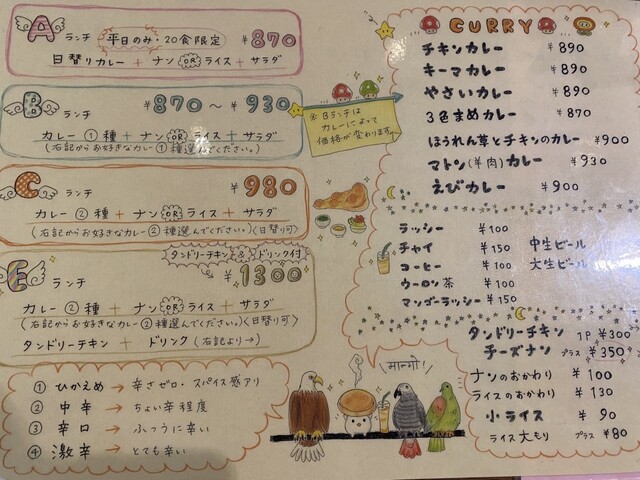 A ランチ 平日のみ・20食限定 ¥870
日替りカレー + ナン OR ライス + サラダ
B ランチ ¥870～¥930
カレー①種 + ナン OR ライス + サラダ
(右記からお好きなカレー①種選んでください。)
※Bランチは
カレーによって
価格が変わります。
C ランチ ¥980
カレー②種 + ナン OR ライス + サラダ
(右記からお好きなカレー②種選んでください。)(日替り可)
タンドリーチキン & ドリンク付
E ランチ ¥1300
カレー②種 + ナン OR ライス + サラダ
(右記からお好きなカレー②種選んでください。)(日替り可)
タンドリーチキン + ドリンク(右記より→)
① ひかえめ → 辛さゼロ・スパイス感アリ
② 中辛 → ちょい辛程度
③ 辛口 → ふつうに辛い
④ 激辛 → とても辛い
CURRY
チキンカレー ¥890
キーマカレー ¥890
やさいカレー ¥890
3色まめカレー ¥870
ほうれん草とチキンのカレー ¥900
マトン(羊肉)カレー ¥930
えびカレー ¥900
ラッシー ¥100
チャイ ¥150 中生ビール
コーヒー ¥100 大生ビール
ウーロン茶 ¥100
マンゴーラッシー ¥150
タンドリーチキン 1P ¥300
チーズナン プラス ¥350
ナンのおかわり ¥100
ライスのおかわり ¥130
小ライス ¥90
ライス大もり プラス ¥80